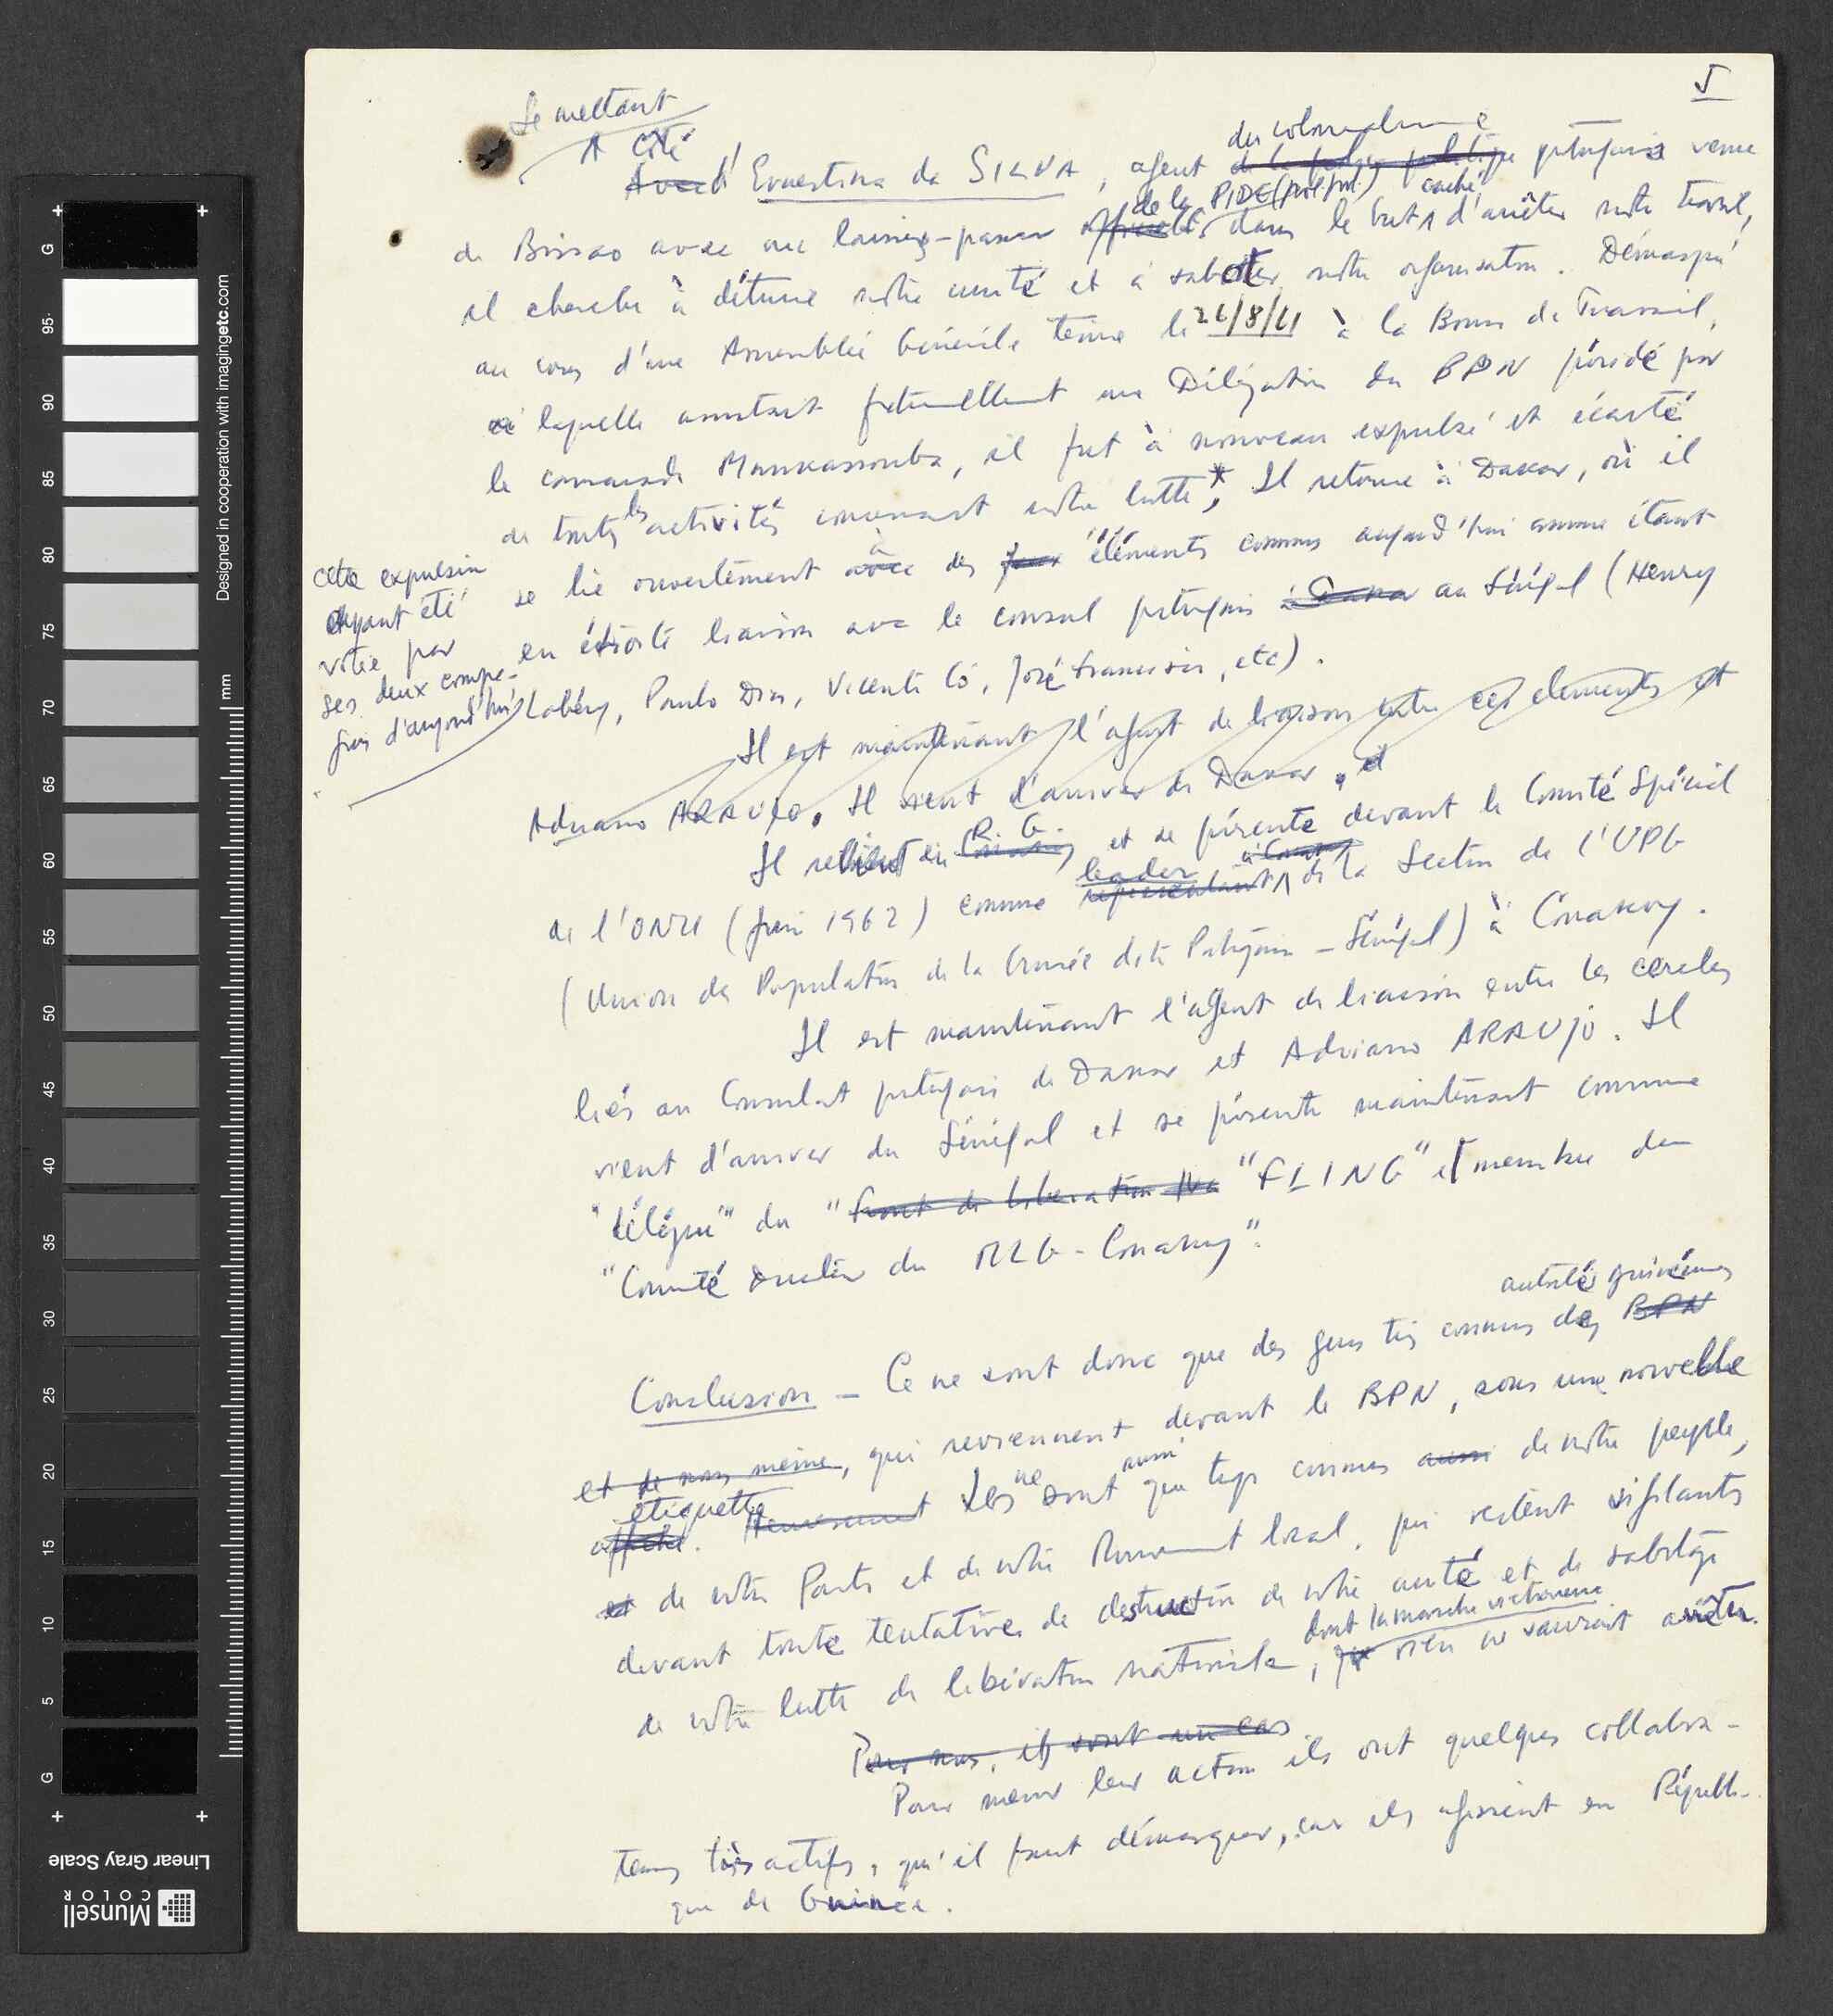 5
Se mettant
A côté
Avec d'Ernestina da SILVA, agent de la police politique du colonialisme portugais venue
de Bissao avec un laissez-passer officiel de la PIDE (pol. pol.) dans le but caché d'arrêter notre travail,
il cherche à détruire notre unité et à saboter notre organisation. Démasqué
au cours d'une Assemblée Générale tenue le 26/8/61 à la Bourse de Travail,
à laquelle assistait fraternellement une Délégation du BPN présidé par
le camarade Mankassouba, il fut à nouveau expulsé et écarté
de toutes les activités concernant notre lutte*. Il retourne à Dakar, où il
se lie ouvertement avec à des faux éléments connus aujourd'hui comme étant
en étroite liaison avec le consul portugais à Dakar au Sénégal (Henry
Labéry, Paulo Dias, Vicente Có, José Francisco, etc).
cette expulsion
ayant été
votée par
ses deux compa-
gnons d'aujourd'hui
Il est maintenant l'agent de liaison entre ces elements et
Adriano ARAUJO. Il vient d'arriver de Dakar, et
Il revient en Conakry R. G. et se présente devant le Comité Spécial
de l'ONU (Juin 1962) comme representant leader à Conakry de la Section de l'UPG
(Union des Populations de la Guinée dite Portugaise - Sénégal) à Conakry.
Il est maintenant l'agent de liaison entre les cercles
liés au Consulat portugais de Dakar et Adriano ARAUJO. Il
vient d'arriver du Sénégal et se présente maintenant comme
"délégué" du "Front de Liberation Na "FLING" et membre du
"Comité Directeur du MLG - Conakry".
Conclusion - Ce ne sont donc que des gens très connus des BPN autorités guinéennes
et de nous même, qui reviennent devant le BPN, sous une nouvelle
affiche étiquette. Heureusement Ils ne sont aussi que trop connus aussi de notre peuple,
et de notre Parti et de notre Mouvement local, qui restent vigilants
devant toute tentative de destruction de notre unité et de sabotage
de notre lutte de libération nationale, que dont la marche victorieuse rien ne saurait arrêter.
Pour nous, ils sont un cas
Pour mener leur action ils ont quelques collabora-
teurs très actifs, qu'il faut démasquer, car ils agissent en Républi-
que de Guinée.
G 95 90 85 80 75 70 65 60 55 50 45 40 35 30 25 20 15 10 5 G
mm
Designed in cooperation with imagingetc.com
Munsell
COLOR
Linear Gray Scale